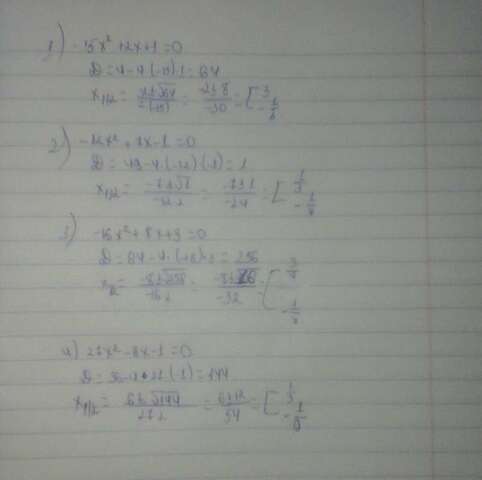 1) -15x² + 2x + 1 = 0
D = 4 - 4 · (-15) · 1 = 64
x₁/₂ = = -2 ± 8 / -30 = [
2) -12x² + 7x - 1 = 0
D = 49 - 4 · (-12) · (-1) = 1
x₁/₂ = -7 ± √1 / -12 · 2 = -7 ± 1 / -24 = [
3) -16x² + 8x + 3 = 0
D = 64 - 4 · = 256
x₁/₂ = -8 ± √256 / -16 · 2 = -8 ± 16 / -32 = [ 3/4 -1/4
4) 27x² - x - 1 = 0
D = 36 - 4 · 27 · (-1) = 144
x₁/₂ = 6 ± √144 / 27 · 2 = 6 ± 12 / 54 = [ 1/3 -1/9